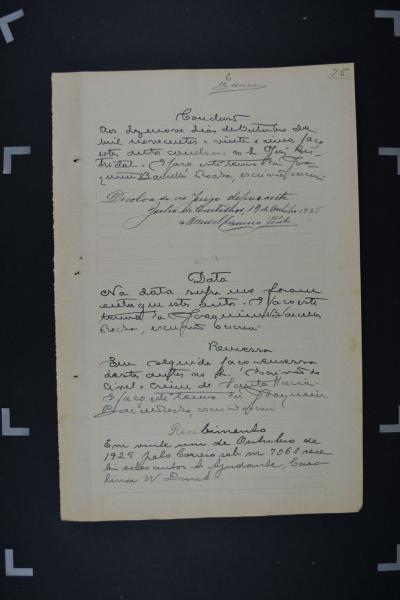 75
6
Concluso
Aos dezenove dias de Outubro de
mil novecentos e vinte e cinco faço
estes autos conclusos ao
Faço este termo Eu Joa-
quim escrivão escrevi
Devolva-se ao Juizo deprecante
Julio de Castilhos, 19 de Outubro 1925
Manoel
Data
Na data supra me foram
entregues estes autos. Faço este
termo Eu Joaquim Barcellos
Rocha, escrivão escrevi
Remessa
Em seguida faço remessa
destes autos ao Sr. Escrivão do
Civel e Crime de Santa Maria
Faço este termo Eu Joaquim
Rocha, escrivão escrevi
Recebimento
Em vinte um de Outubro de
1925 pelo Correio sob nº 7061 rece
bi estes autos A Ajudante, Caro-
lina W